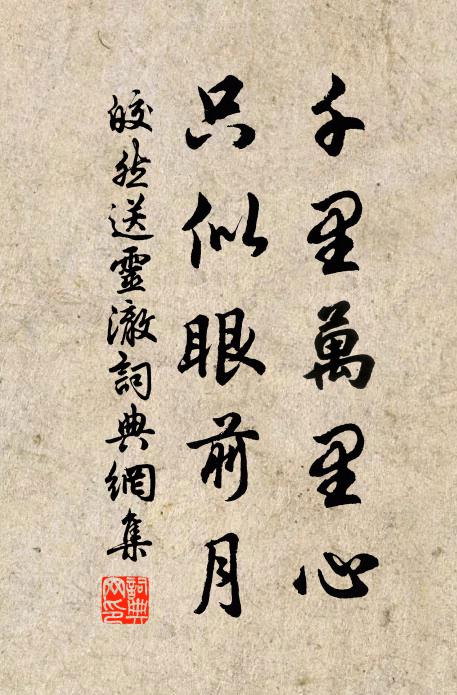 千里萬里心
只似眼前月
皎然送靈澈詞典網集
詞典
网印